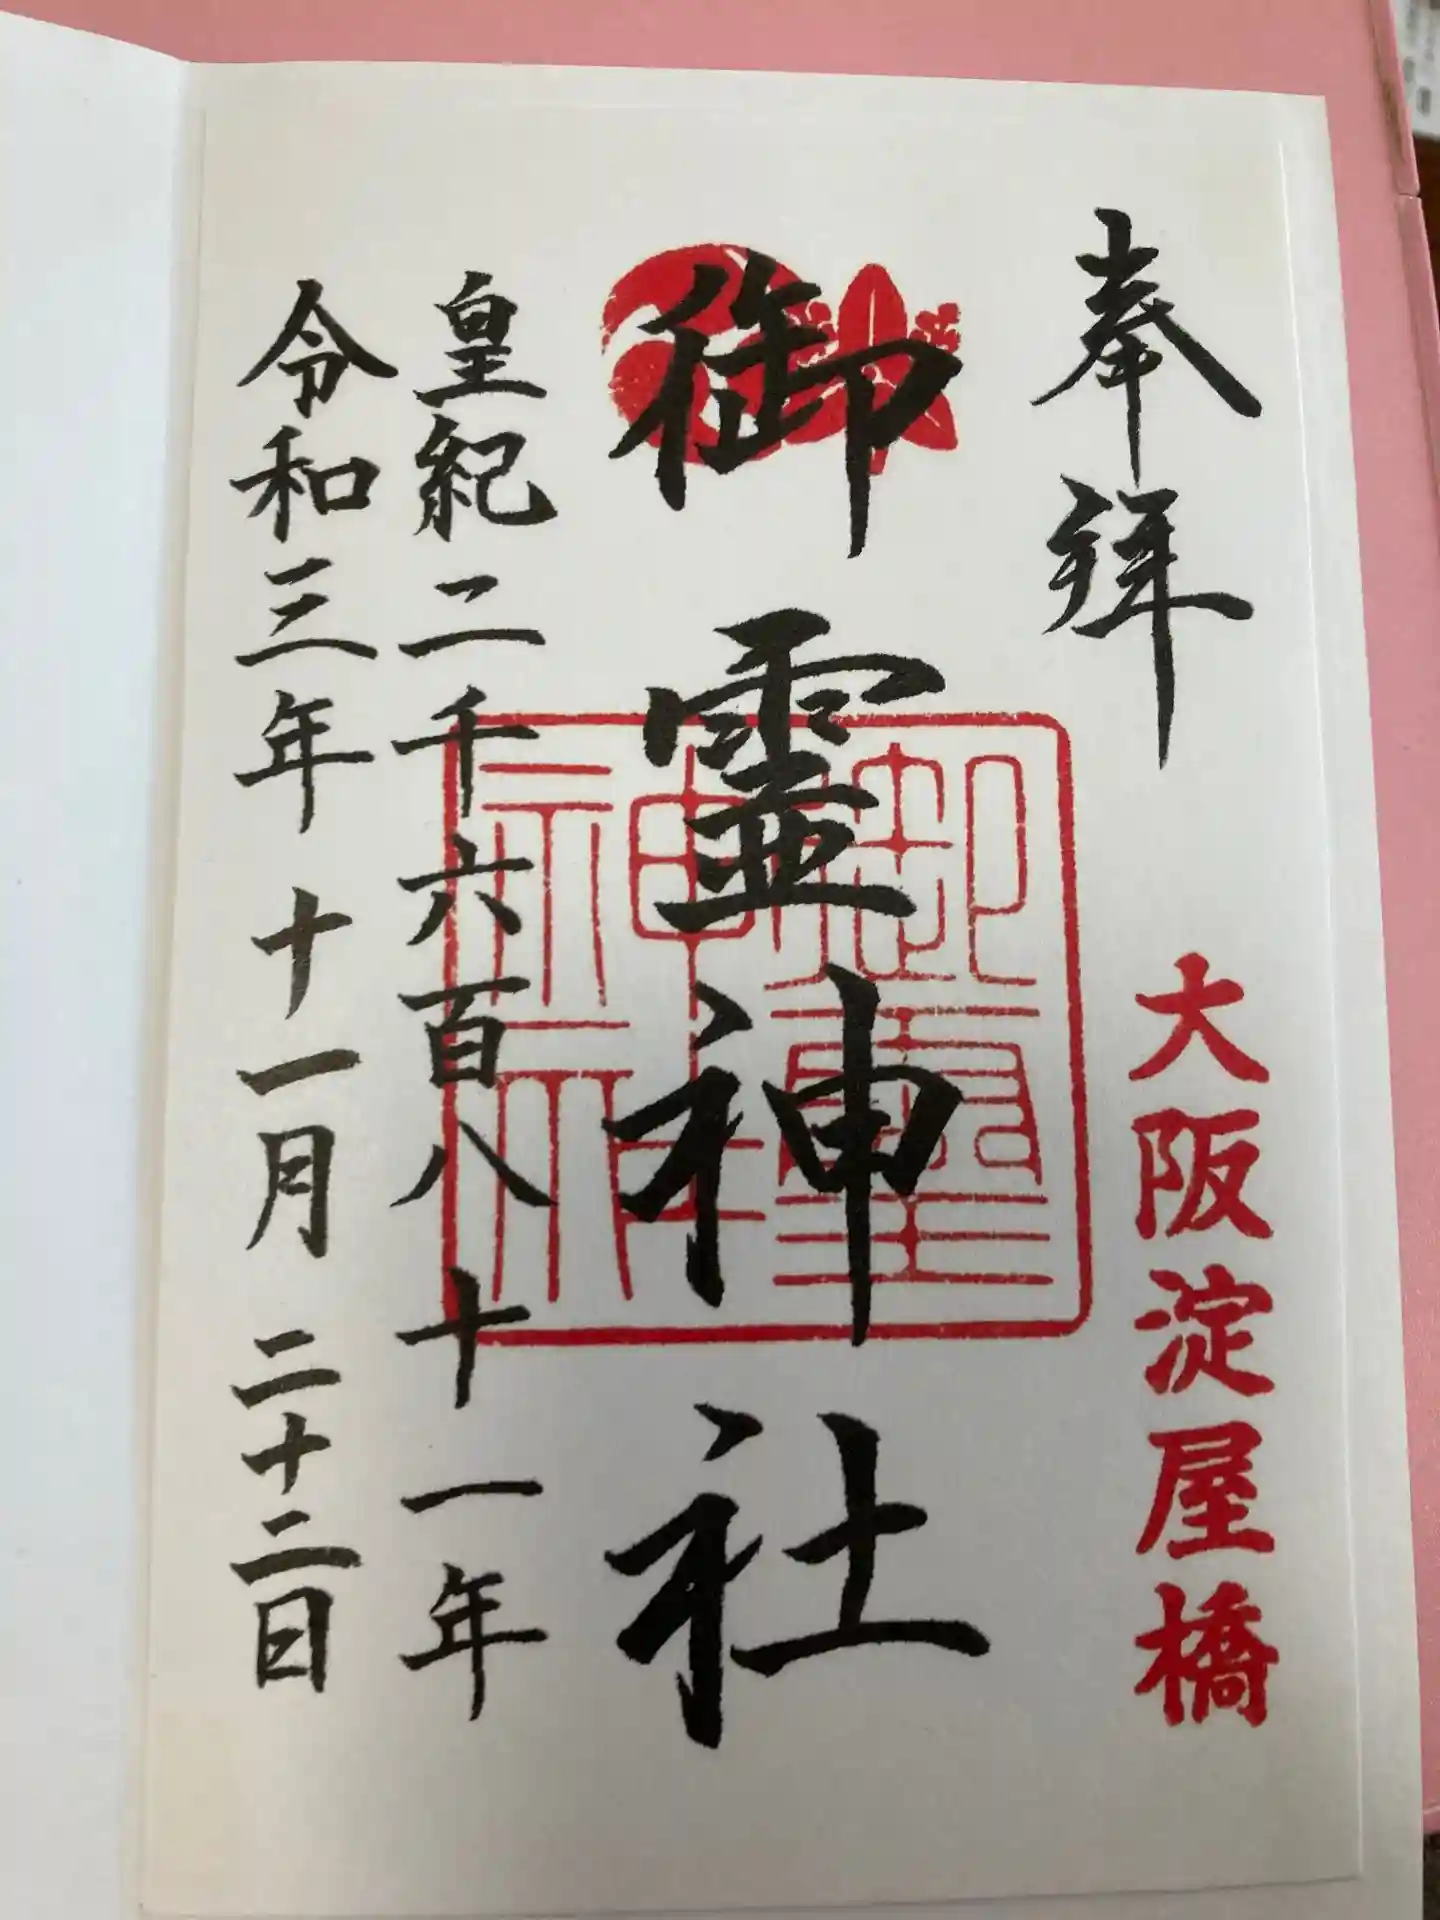 奉拝
大阪淀屋橋
御霊神社
御霊神社
皇紀二千六百八十一年
令和三年十一月二十二日